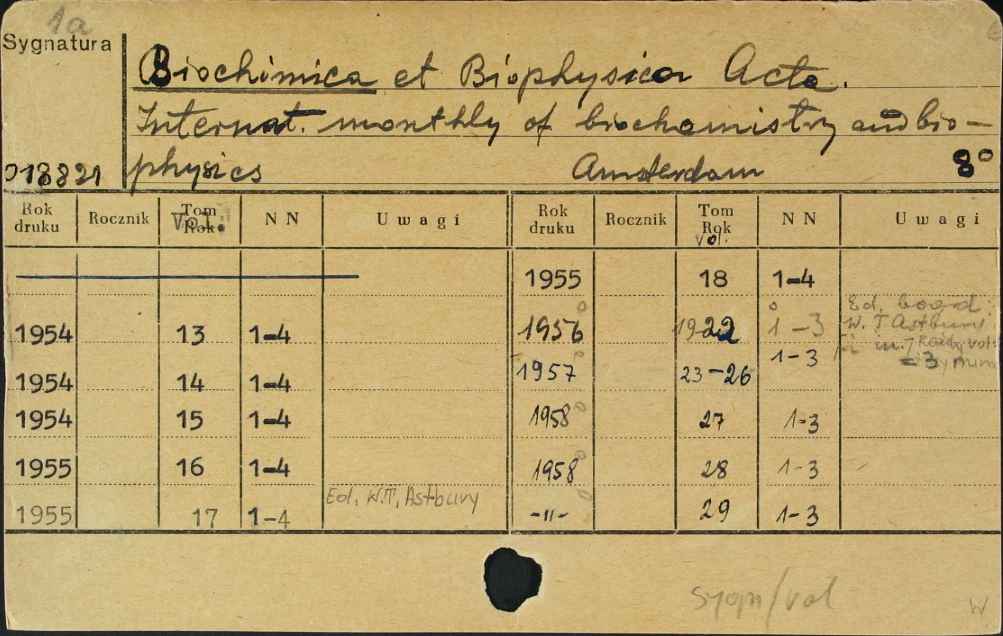 1a
Sygnatura
Biochimica et Biophysica Acta.
Internat. monthly of biochemistry and bio-
018821 physics Amsterdam 8°
Rok druku Rocznik Tom Rok Vol. NN Uwagi Rok druku Rocznik Tom Rok vol. NN Uwagi
1955 18 1-4
1954 13 1-4 1956 19-22 1-3 Ed. boad:
W. T Astbury
(i in.) Każdy vol:
1954 14 1-4 1957 23-26 1-3 = 3 num
1954 15 1-4 1958 27 1-3
1955 16 1-4 1958 28 1-3
1955 17 1-4 Ed. W.T. Astbury -11- 29 1-3
sygn/vol
W